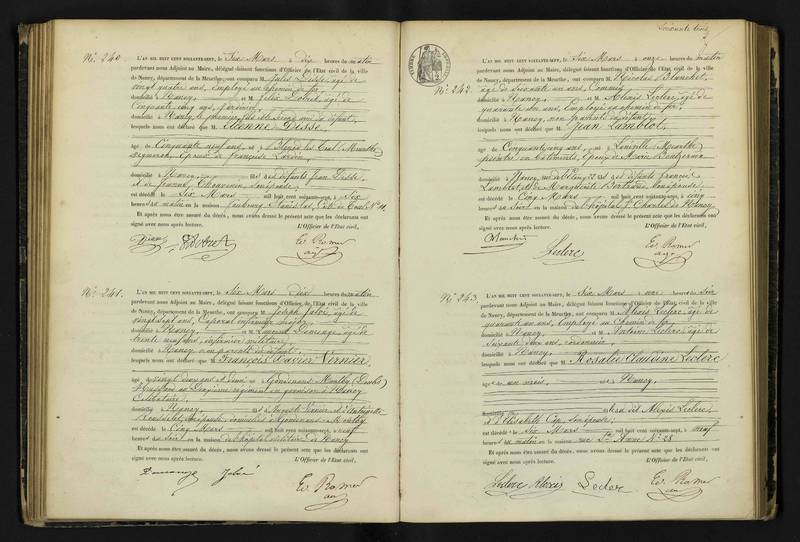 Nº 240.
L'AN MIL HUIT CENT SOIXANTE-SEPT, le Six Mars à dix heures du matin
pardevant nous Adjoint au Maire, délégué faisant fonctions d'Officier de l'Etat civil de la ville
de Nancy, département de la Meurthe, ont comparu M. Jules Disse, âgé de
vingt quatre ans, employé au chemin de fer,
domicilié à Nancy, et Félix âgé de
Cinquante cinq ans, jardinier,
domicilié à Nancy, le premier fils et le second ami du défunt,
lesquels nous ont déclaré que M. Etienne Disse,
âgé de Cinquante neuf ans, né à Blénod les Toul (Meurthe)
vigneron, époux de Françoise
domicilié à Nancy, fils des défunts Jean Disse,
et de Jeanne son épouse,
est décédé le Six Mars mil huit cent soixante-sept, à Six
heures du matin en la maison faubourg Stanislas,
Et après nous être assuré du décès, nous avons dressé le présent acte que les déclarants ont
signé avec nous après lecture. L'Officier de l'Etat civil,
Ev Romer
adj
Nº 241.
L'AN MIL HUIT CENT SOIXANTE-SEPT, le Six Mars à dix heures du matin
pardevant nous Adjoint au Maire, délégué faisant fonctions d'Officier de l'Etat civil de la ville
de Nancy, département de la Meurthe, ont comparu M. Joseph âgé de
vingt sept ans, Caporal infirmier major,
domicilié à Nancy, et Vincent Domange, âgé de
trente neuf ans, infirmier militaire,
domicilié à Nancy, non parents du défunt,
lesquels nous ont déclaré que M. François Xavier Vernier,
âgé de vingt deux ans et demi né à (Doubs)
régiment en garnison à Nancy
Célibataire,
domicilié à Nancy, fils d'Auguste Vernier et d'
est décédé le Cinq Mars mil huit cent soixante-sept, à neuf
heures du soir en la maison de l'hôpital militaire de Nancy
Et après nous être assuré du décès, nous avons dressé le présent acte que les déclarants ont
signé avec nous après lecture. L'Officier de l'Etat civil,
Domange
Ev Romer
adj
Soixante cinq
Nº 242.
L'AN MIL HUIT CENT SOIXANTE-SEPT, le Six Mars à onze heures du matin
pardevant nous Adjoint au Maire, délégué faisant fonctions d'Officier de l'Etat civil de la ville
de Nancy, département de la Meurthe, ont comparu M. Nicolas Blanchet,
âgé de soixante un ans, Commis,
domicilié à Nancy, et Alexis Leclerc, âgé de
quarante un ans, Employé au chemin de fer,
domicilié à Nancy, non parents du défunt,
lesquels nous ont déclaré que M. Jean Lamblot,
âgé de Cinquante cinq ans, né à Lunéville (Meurthe)
peintre en bâtiments, époux de Marie
domicilié à Nancy, fils des défunts François
Lamblot, et de Marguerite Bertrand, son épouse,
est décédé le Cinq Mars mil huit cent soixante-sept, à cinq
heures du soir en la maison de l'hôpital St Charles de Nancy
Et après nous être assuré du décès, nous avons dressé le présent acte que les déclarants ont
signé avec nous après lecture. L'Officier de l'Etat civil,
Blanchet
Leclerc
Ev Romer
adj
Nº 243.
L'AN MIL HUIT CENT SOIXANTE-SEPT, le Six Mars à onze heures du
pardevant nous Adjoint au Maire, délégué faisant fonctions d'Officier de l'Etat civil de la ville
de Nancy, département de la Meurthe, ont comparu M. Alexis Leclerc, âgé de
quarante un ans, Employé au chemin de fer,
domicilié à Nancy, et Antoine Leclerc, âgé de
soixante deux ans, cordonnier,
domicilié à Nancy,
lesquels nous ont déclaré que Rosalie Claudine Leclerc
âgée de un mois, née à Nancy,
domiciliée à fille du dit Alexis Leclerc,
et d'Elisabeth son épouse,
est décédée le Six Mars mil huit cent soixante-sept, à neuf
heures du matin en la maison rue Ste Anne Nº 28
Et après nous être assuré du décès, nous avons dressé le présent acte que les déclarants ont
signé avec nous après lecture. L'Officier de l'Etat civil,
Leclerc Alexis
Leclerc
Ev Romer
adj